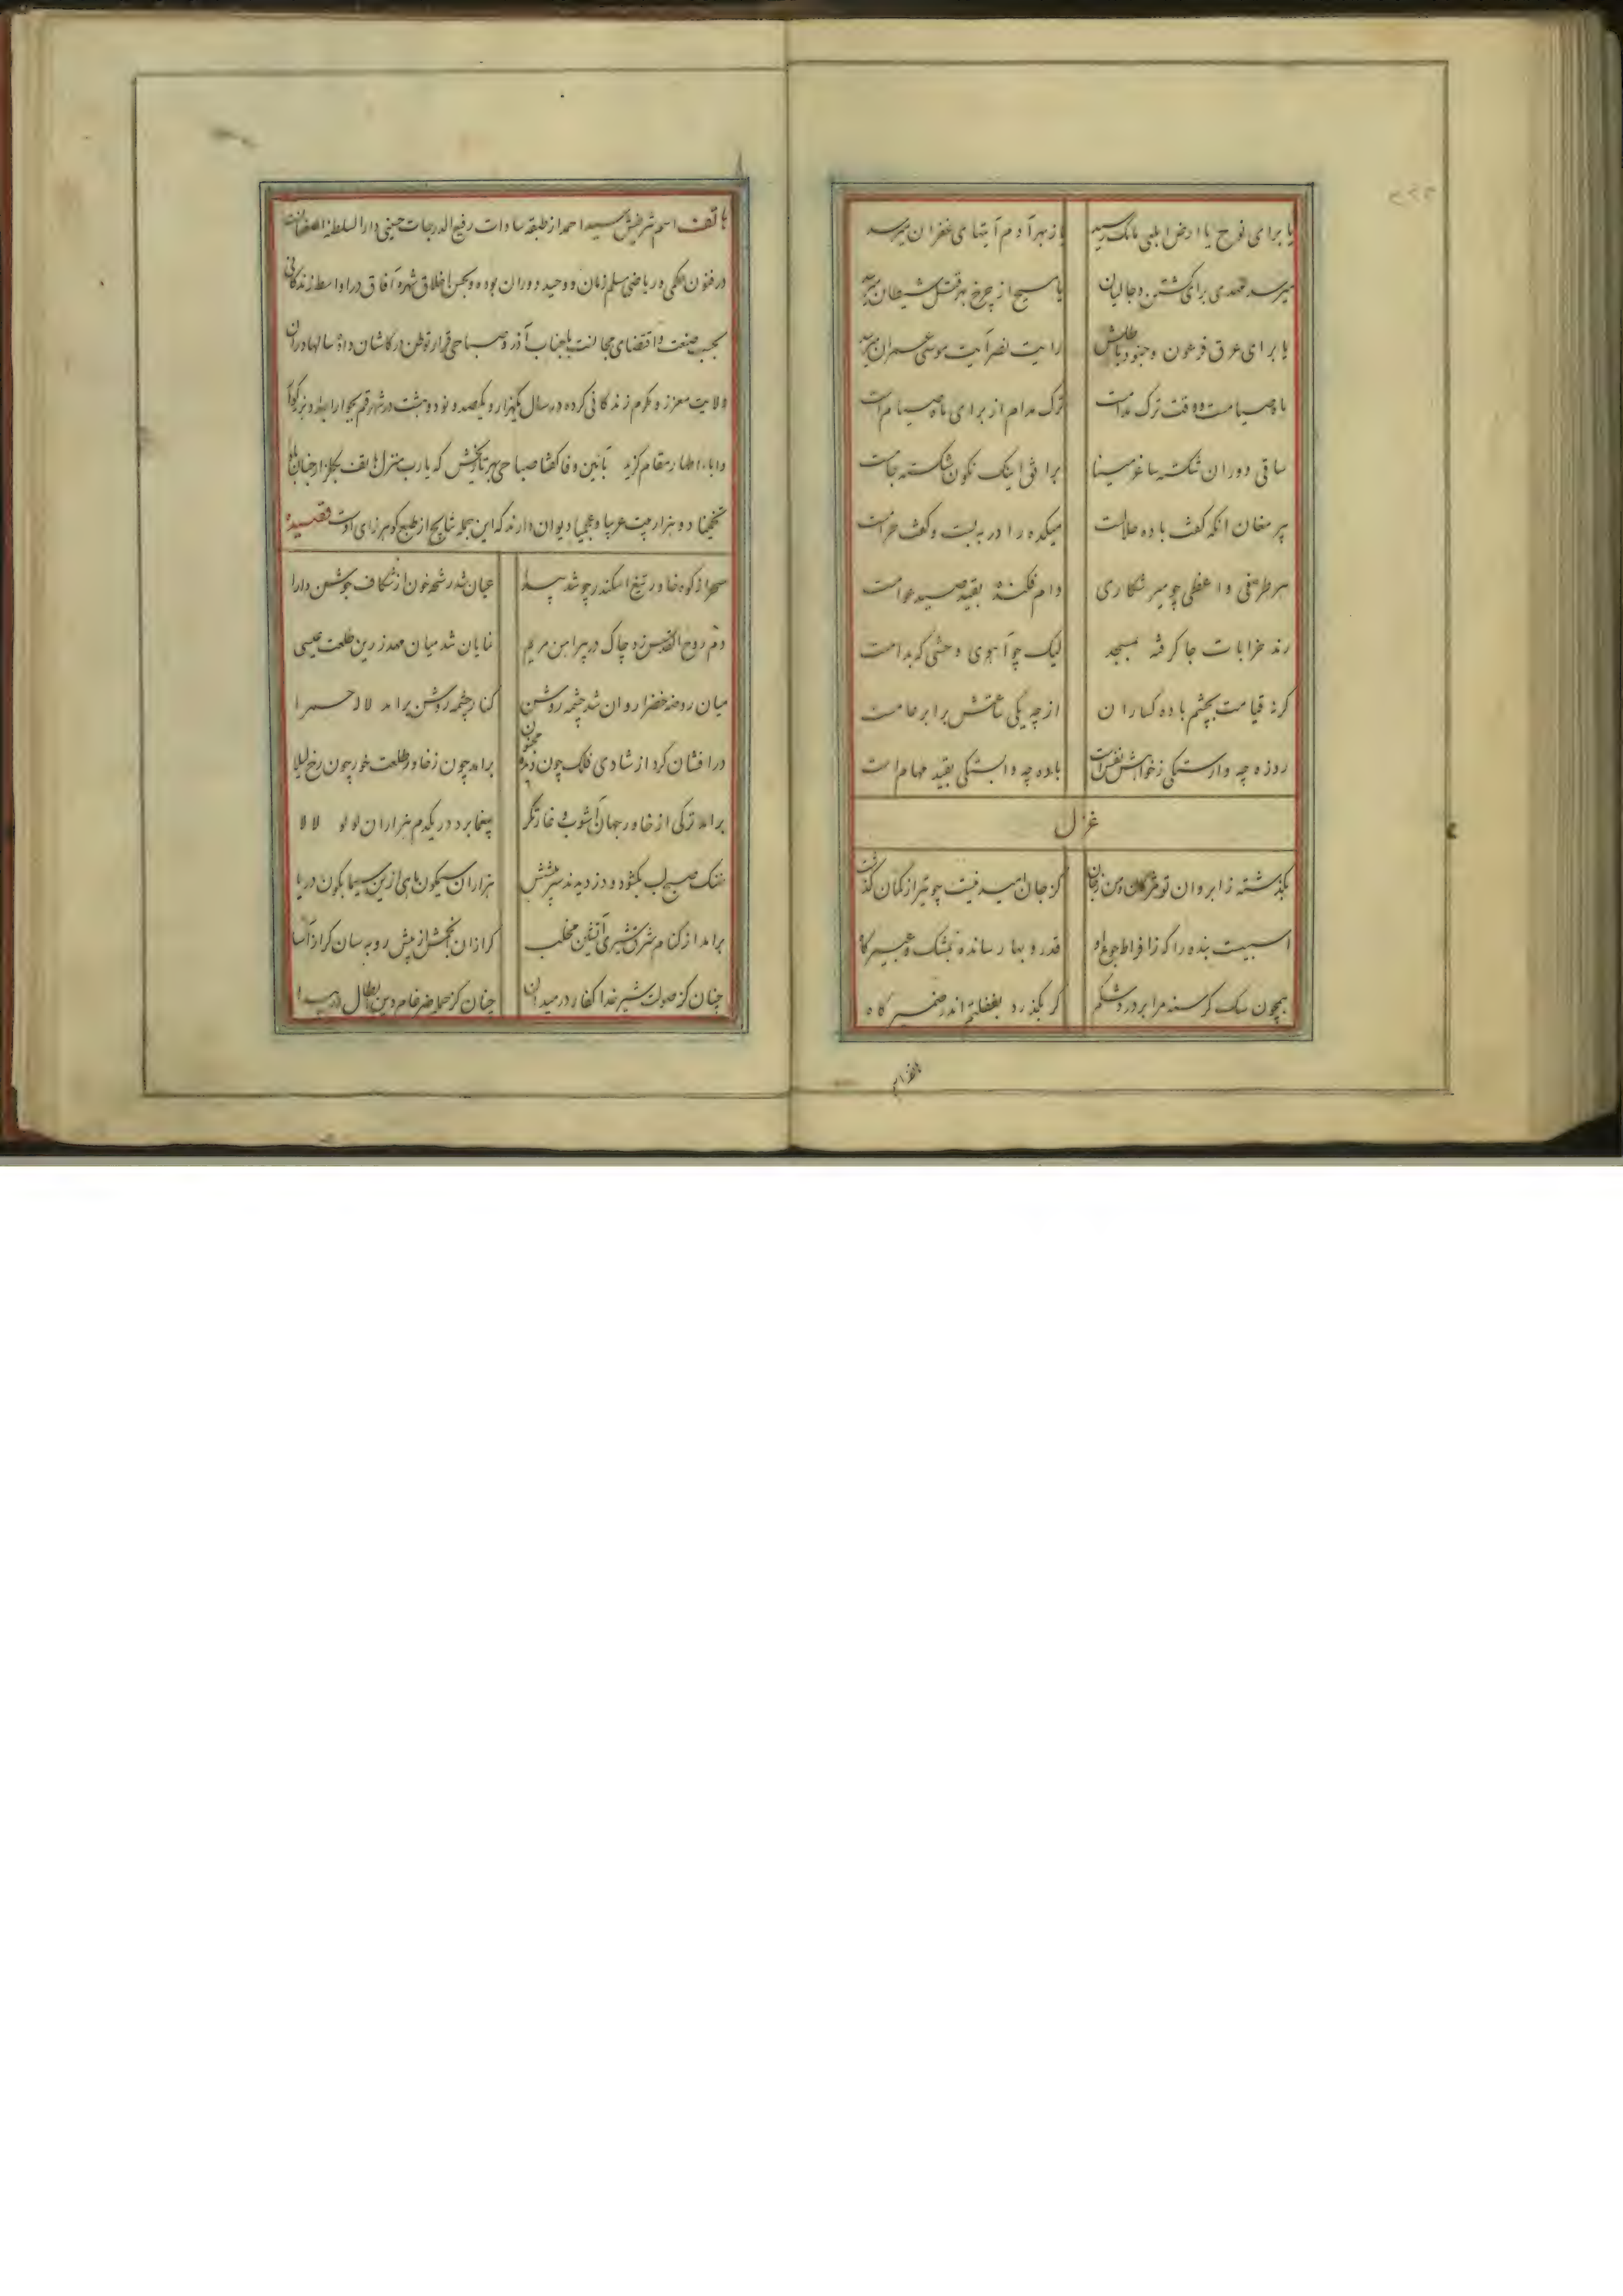 یا برای نوح یا ارض ابلعی مائک رسید یا ز بهر آدم آیتهای غفران میرسد
میرسد مهدی برای کشتن دجالیان یا مسیح از چرخ بهر قتل شیطان میرسد
یا برای غرق فرعون و جنود باطلش رایت نصر آیت موسی عمران میرسد
ماه صیامست و وقت ترک مدامست ترک مدام از برای ماه صیام است
ساقی دوران شکسته ساغر مینا برافق اینک نکون شکسته جامست
پیر مغان انکه کفت باده حلالست میکده را در به بست و کفت حرامست
هر طرفی واعظی چو میر شکاری دام فکنده بقید صید عوامست
رند خرابات جا کرفته بمسجد لیک چو آهوی وحشی که بدامست
کرده قیامت بچشم باده کساران از چه یکی ساعتش برابر عامست
روزه چه وارستکی ز خواهش نفس است باده چه وابستکی بقید مهام است
غزل
بکذشته ز ابروان تو مژکان و من ز جان کز جان امید نیست چو تیر از کمان کذشت
اسبیست بنده را که ز افراط جوع او قدر و بها رسانده بمشک و عبیر کاه
همچون سک کرسنه مرا بردرد شکم کر بکذرد بغفلتم اندر ضمیر کاه
هاتف اسم شریفش سید احمد از طبقه سادات رفیع الدرجات حسینی دار السلطنه اصفهانست
در فنون حکمی و ریاضی مسلم زمان و وحید دوران بوده و بحسن اخلاق شهره آفاق در اواسط زندکانی
بحسب صنعت و اقتضای مجالست با جناب آذر و صباحی قرار توطن در کاشان داده سالها در ان
ولایت معزز و مکرم زندکانی کرده در سال یکهزار و یکصد و نود و هشت در شهر قم بجوار
و اباء اطهار مقام کزید بآئین وفا کفتا صباحی بهر تاریخش که یارب منزل هاتف بکلزار جنان بادا
تخمینا دو هزار بیت عربیا و عجمیا دیوان دارند که این جمله نتایج از طبع کوهرزای اوست قصیده
سحر از کوه خاور تیغ اسکندر چو شد پیدا عیان شد رشحه خون از شکاف جوشن دارا
دم روح القدس زد چاک در پیراهن مریم نمایان شد میان مهد زرین طلعت عیسی
میان روضه خضرا روان شد چشمه روشن کنار چشمه روشن برآمد لاله حمرا
درافشان کرد از شادی فلک چون دیده مجنون برآمد چون ز خاور طلعت خور چون رخ لیلا
برآمد ترکی از خاور جهان آشوب و غارتکر بیغما برد در یکدم هزاران لولو لالا
نهنک صبح لب بکشود و دزدیدند سر پیشش هزاران سیمکون ماهی ازین سیمابکون دریا
برآمد از کنام شرق شیری آتشین مخلب کرازان انجمش از پیش روبه سان کرازآسا
چنان کز صولت شیر خدا کفار در میدان چنان کز حمله ضرغام دین ابطال در هیجا